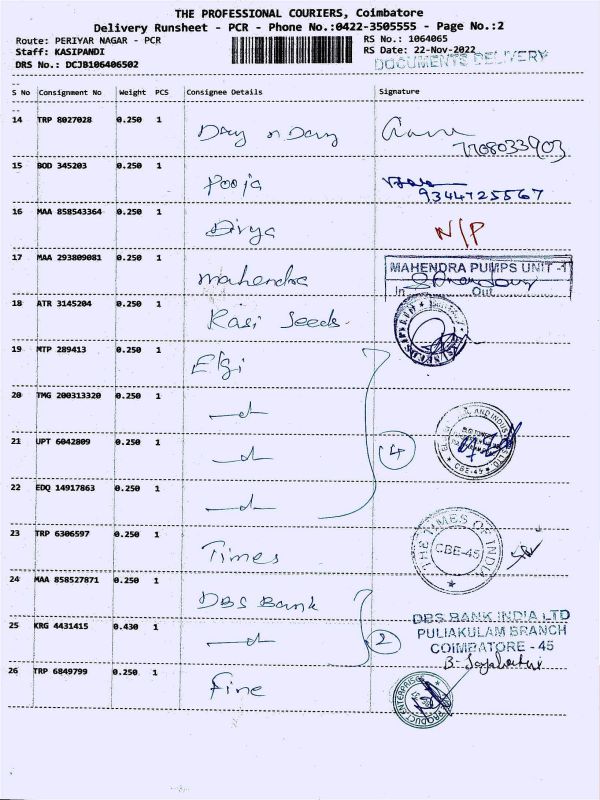 THE PROFESSIONAL COURIERS, Coimbatore
Delivery Runsheet - PCR - Phone No.:0422-3505555 - Page No.:2
Route: PERIYAR NAGAR - PCR
RS No.: 1064065
Staff: KASIPANDI
RS Date: 22-Nov-2022
DRS No.: DCJB106406502
DOCUMENTS DELIVERY
S No Consignment No Weight PCS Consignee Details Signature
14 TRP 8027028 0.250 1 Day n Day
7708033903
15 BOD 345203 0.250 1 Pooja
9344725567
16 MAA 858543364 0.250 1 Divya N/P
17 MAA 293809081 0.250 1 mahendra MAHENDRA PUMPS UNIT -1
In Out
18 ATR 3145204 0.250 1 Kasi Seeds.
19 MTP 289413 0.250 1 Elgi
20 TMG 200313320 0.250 1 —d—
CBE-45
21 UPT 6042809 0.250 1 —d— 4
22 EDQ 14917863 0.250 1 —d—
23 TRP 6306597 0.250 1 Times THE TIMES OF INDIA CBE-45
24 MAA 858527871 0.250 1 DBS Bank
25 KRG 4431415 0.430 1 —d— 2
DBS BANK INDIA LTD
PULIAKULAM BRANCH
COIMBATORE - 45
26 TRP 6849799 0.250 1 Fine